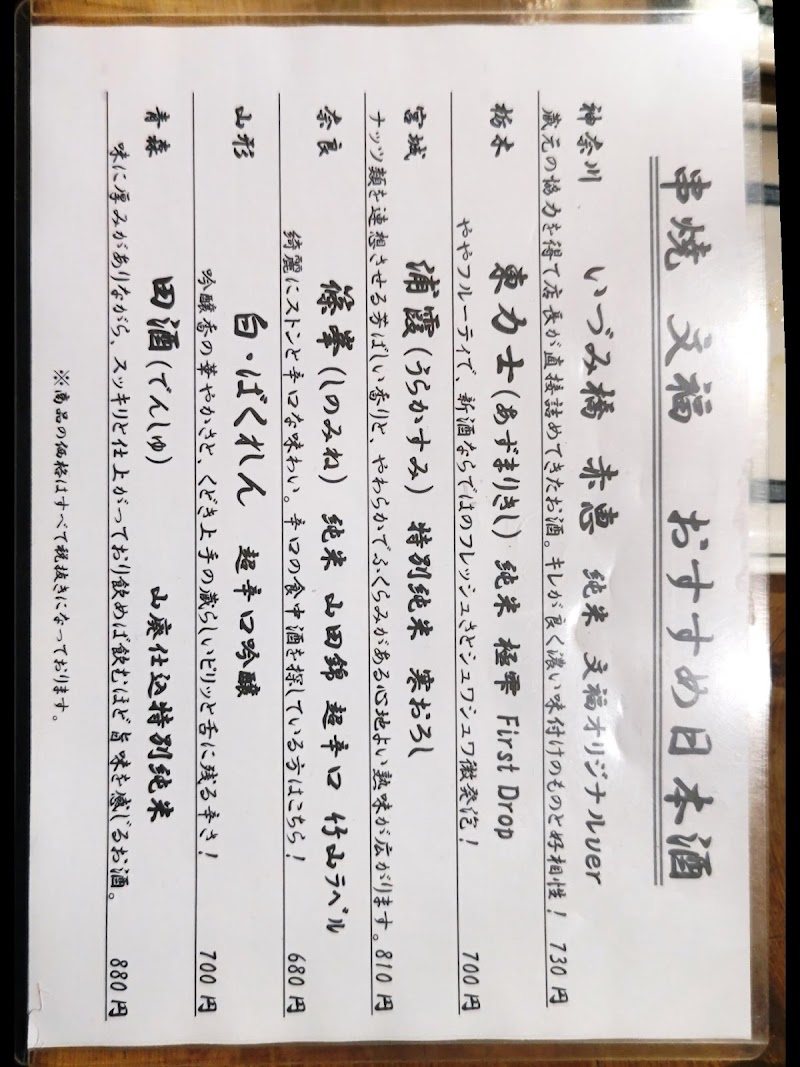 串焼 文福 おすすめ日本酒
神奈川 いづみ橋 赤恵 純米 文福オリジナルver
蔵元の協力を得て店長が直接詰めてきたお酒。キレが良く濃い味付けのものと好相性! 730円
栃木 東力士(あずまりきし) 純米 極雫 First Drop
ややフルーティで、新酒ならではのフレッシュさとシュワシュワ微発泡! 700円
宮城 浦霞(うらかすみ) 特別純米 寒おろし
ナッツ類を連想させる芳ばしい香りと、やわらかでふくらみがある心地よい熟味が広がります。810円
奈良 篠峯(しのみね) 純米 山田錦 超辛口 竹山ラベル
綺麗にストンと辛口な味わい。辛口の食中酒を探している方はこちら! 680円
山形 白・ばくれん 超辛口吟醸
吟醸香の華やかさと、くどき上手の蔵らしいピリッと舌に残る辛さ! 700円
青森 田酒(でんしゅ) 山廃仕込特別純米
味に厚みがありながら、スッキリと仕上がっており飲めば飲むほど旨味を感じるお酒。 880円
※商品の価格はすべて税抜きになっております。